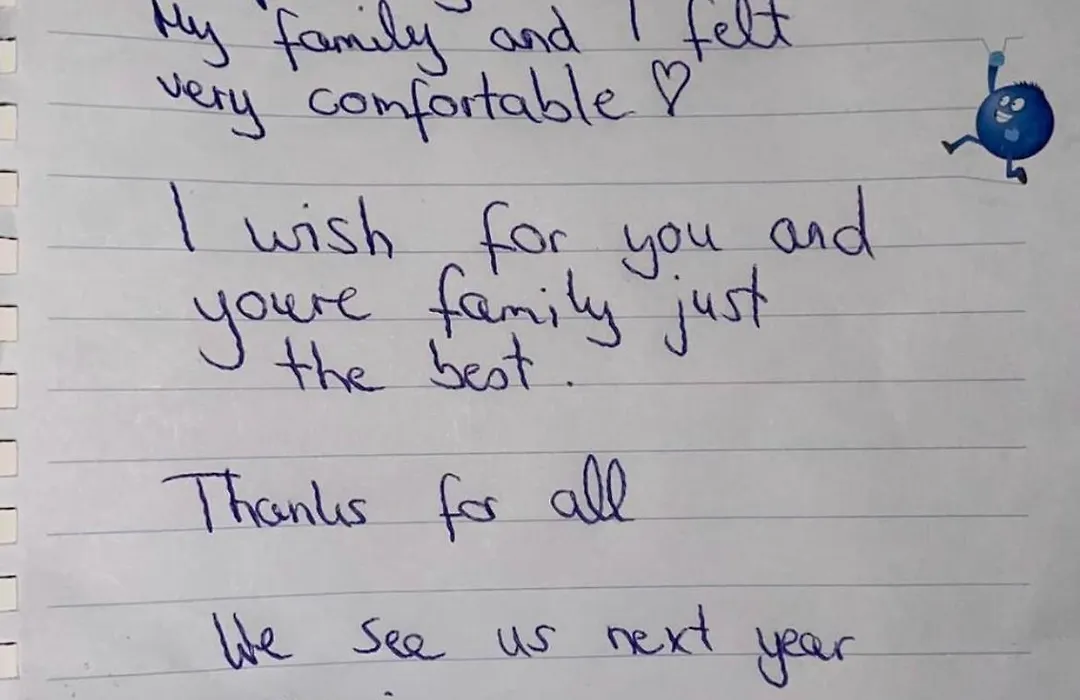 My family and I felt
very comfortable ♡
I wish for you and
youre family just
the best.
Thanks for all
We see us next year